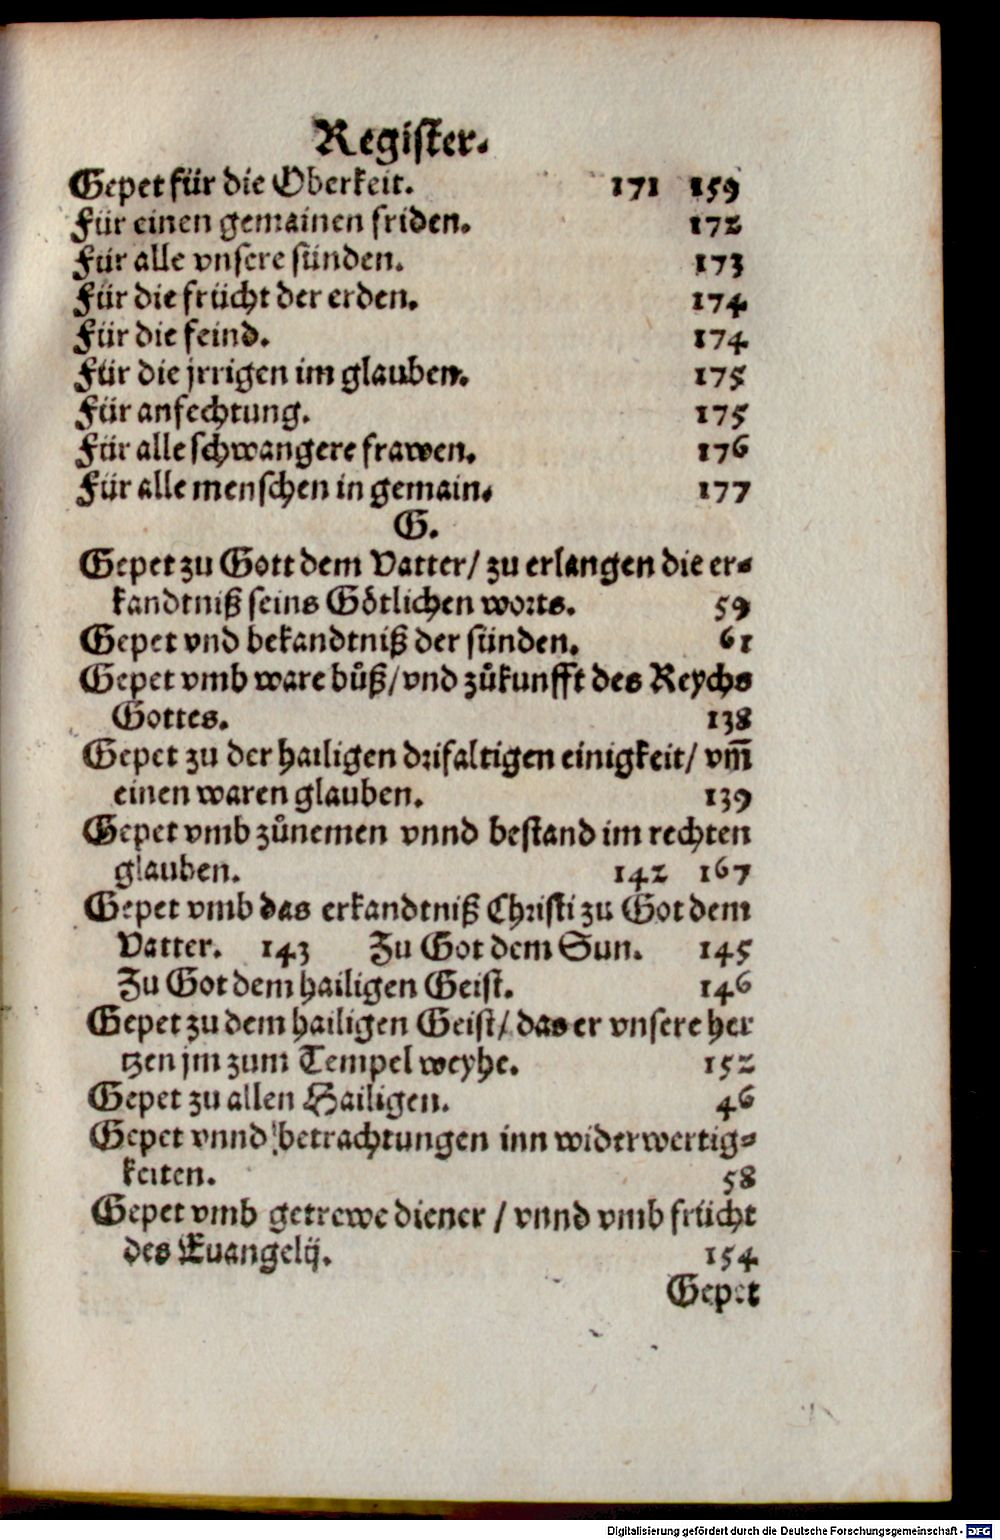 Register.
Gepet für die Oberkeit. 171 159
Für einen gemainen friden. 172
Für alle vnsere sünden. 173
Für die frücht der erden. 174
Für die feind. 174
Für die jrrigen im glauben. 175
Für anfechtung. 175
Für alle schwangere frawen. 176
Für alle menschen in gemain. 177
G.
Gepet zu Gott dem Vatter/ zu erlangen die er-
kandtniß seins Götlichen worts. 59
Gepet vnd bekandtniß der sünden. 61
Gepet vmb ware bůß/ vnd zůkunfft des Reychs
Gottes. 138
Gepet zu der hailigen drifaltigen einigkeit/ vm̅
einen waren glauben. 139
Gepet vmb zůnemen vnnd bestand im rechten
glauben. 142 167
Gepet vmb das erkandtniß Christi zu Got dem
Vatter. 143 Zu Got dem Sun. 145
Zu Got dem hailigen Geist. 146
Gepet zu dem hailigen Geist/ das er vnsere her
tzen jm zum Tempel weyhe. 152
Gepet zu allen Hailigen. 46
Gepet vnnd betrachtungen inn widerwertig-
keiten. 58
Gepet vmb getrewe diener / vnnd vmb frücht
des Euangelij. 154
Gepet
Digitalisierung gefördert durch die Deutsche Forschungsgemeinschaft - DFG